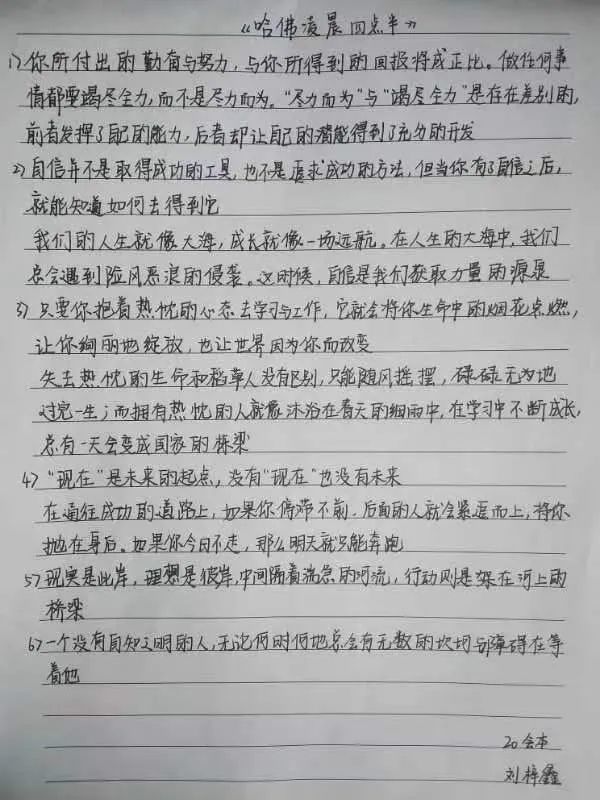 《哈佛凌晨四点半》
1）你所付出的勤奋与努力，与你所得到的回报将成正比。做任何事
情都要竭尽全力，而不是尽力而为。“尽力而为”与“竭尽全力”是存在差别的，
前者发挥了自己的能力，后者却让自己的潜能得到了充分的开发
2）自信并不是取得成功的工具，也不是追求成功的方法，但当你有了自信之后，
就能知道如何去得到它
我们的人生就像大海，成长就像一场远航。在人生的大海中，我们
总会遇到险风恶浪的侵袭。这时候，自信是我们获取力量的源泉
3）只要你抱着热忱的心态去学习与工作，它就会将你生命中的烟花点燃，
让你绚丽地绽放，也让世界因为你而改变
失去热忱的生命和稻草人没有区别，只能随风摇摆，碌碌无为地
过完一生；而拥有热忱的人就像沐浴在春天的细雨中，在学习中不断成长，
总有一天会变成国家的栋梁
4）“现在”是未来的起点，没有“现在”也没有未来
在通往成功的道路上，如果你停滞不前，后面的人就会紧追而上，将你
抛在身后。如果你今日不走，那么明天就只能奔跑
5）现实是此岸，理想是彼岸，中间隔着湍急的河流，行动则是架在河上的
桥梁
6）一个没有自知之明的人，无论何时何地总会有无数的坎坷与障碍在等
着他
20会本
刘梓鑫